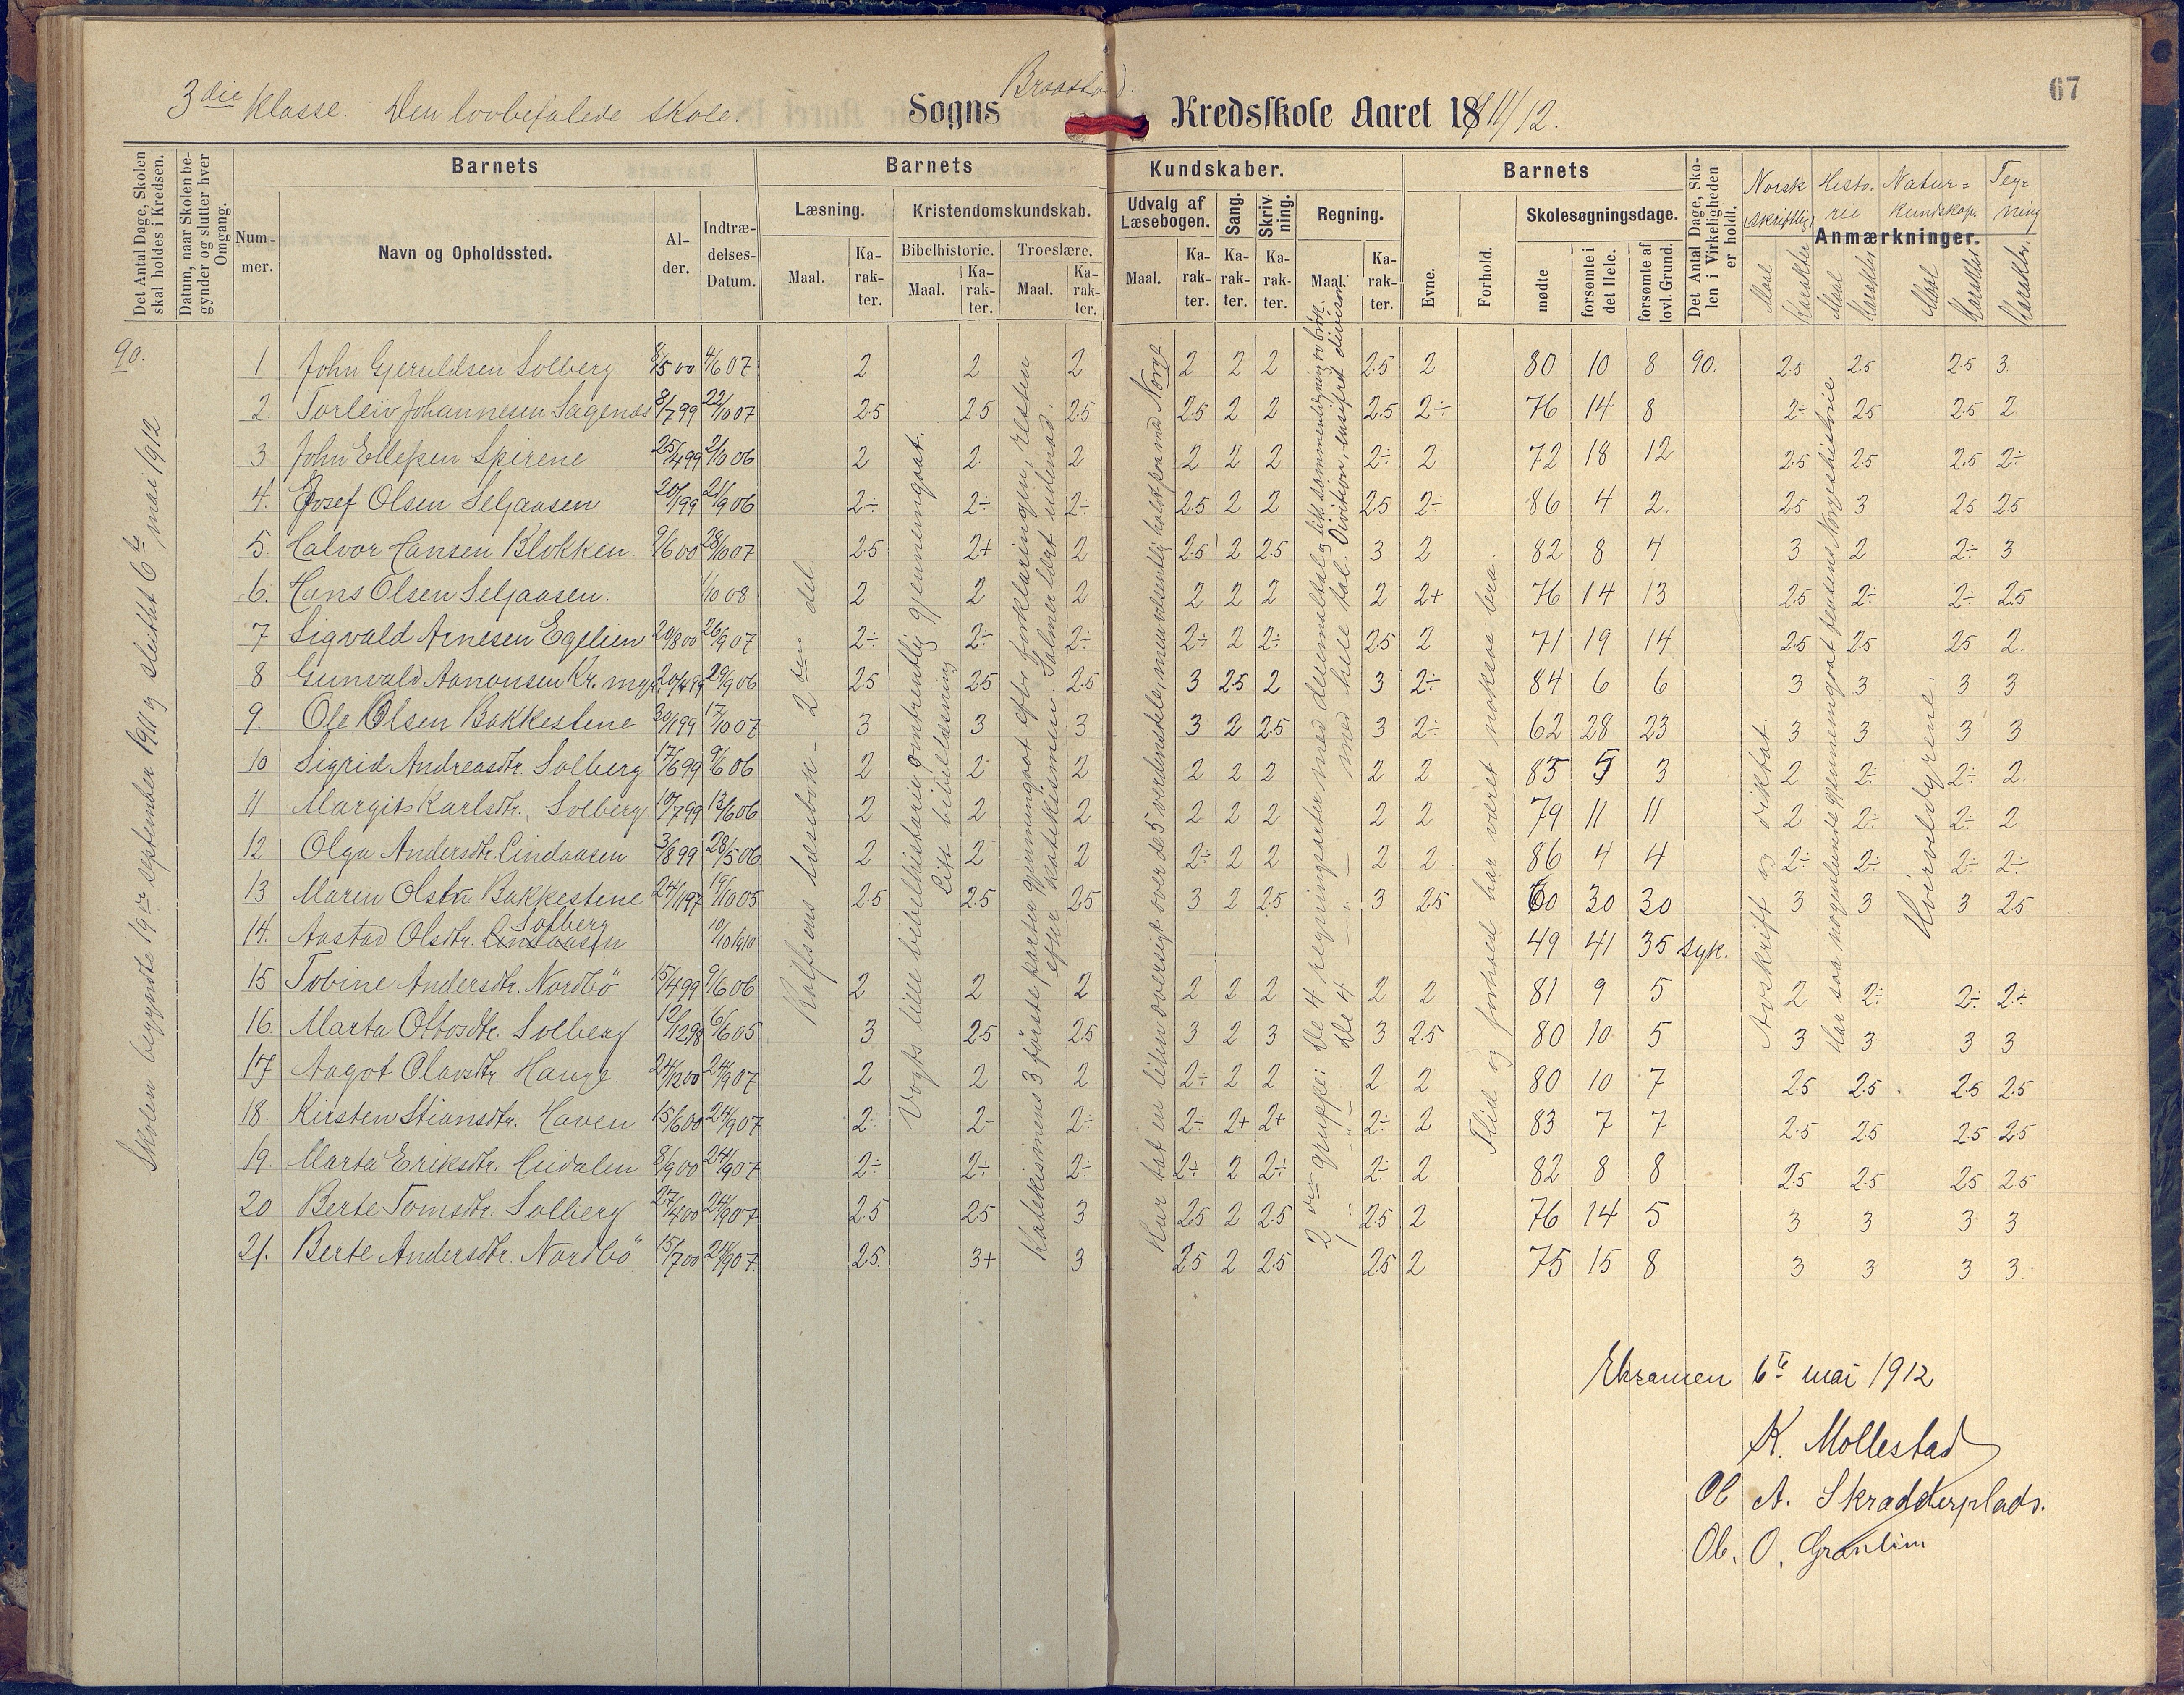 67
3die Klasse. Den lovbefalede skole. Sogns Braastad. Kredsskole Aaret 1911/12.
Det Antal Dage, Skolen skal holdes i Kredsen.
Datum, naar Skolen begynder og slutter hver Omgang.
Barnets
Nummer.
Navn og Opholdssted.
Alder.
Indtrædelses-Datum.
Barnets Kundskaber.
Læsning.
Maal. Karakter.
Kristendomskundskab.
Bibelhistorie. Troeslære.
Maal. Karakter. Maal. Karakter.
Udvalg af Læsebogen.
Maal. Karakter.
Sang. Karakter.
Skrivning. Karakter.
Regning.
Maal. Karakter.
Barnets
Evne.
Forhold.
Skolesøgningsdage.
mødte
forsømte i det Hele.
forsømte af lovl. Grund.
Det Antal Dage, Skolen i Virkeligheden er holdt.
Anmærkninger.
Norsk (skriftlig) Maal Karakter
Historie Maal Karakter
Naturkundskap. Maal Karakter
Tegning Karakter.
90.
Skolen begyndte 19de september 1911 og sluttet 6te mai 1912
Rolfsens læsebok - 2den del.
Vogts lille bibelhistorie omtrentlig gjennemgaat.
Litt bibellæsning
Katekismens 3 første parter gjennemgaat efter forklaringen, resten
efter katekismen. Salmer lært utenad.
Har tat en liten oversigt over de 5 verdensdele, men væsentlig holdt paa med Norge.
2den gruppe: De 4 regningsarter med decimaltal og litt sammenligning av brøk.
1 - " - De 4 - " - med hele tal. Division, ensifret divisor.
Flid og forhold har været noksaa bra.
Avskrift og diktat.
Har saa nogenlunde gjennemgaat Jensens Norgeshistorie
Hvirveldyrene.
1 John Gjeruldsen Solberg 8/5 00 4/6 07 2 2 2 2 2 2 2.5 2 80 10 8 90. 2.5 2.5 2.5 3.
2. Torleiv Johannesen Sagenæs 8/7 99 22/10 07 2.5 2.5 2.5 2.5 2 2 2.5 2÷ 76 14 8 2÷ 2.5 2.5 2
3 John Ellefsen Spirene 25/4 99 2/10 06 2 2 2 2 2 2 2÷ 2 72 18 12 2.5 2.5 2.5 2÷
4. Josef Olsen Seljaasen 21/9 06 2÷ 2÷ 2÷ 2.5 2 2 2.5 2÷ 86 4 2. 2.5 3 2.5 2.5
5. Halvor Hansen Blokken 9/6 00 28/10 07 2.5 2+ 2 2.5 2 2.5 3 2 82 8 4 3 2 2÷ 3
6. Hans Olsen Seljaasen. 1/10 08 2 2 2 2 2 2 2 2+ 76 14 13 2.5 2÷ 2÷ 2.5
7 Sigvald Arnesen Egelien 20/8 00 26/9 07 2÷ 2÷ 2÷ 2÷ 2 2÷ 2.5 2 71 19 14 2.5 2.5 2.5 2.
8 Gunvald Aanonsen Kr. myr 20/4 99 29/9 06 2.5 2.5 2.5 3 2.5 2 3 2÷ 84 6 6 3 3 3 3
9. Ole Olsen Bakkestene 30/1 99 17/10 07 3 3 3 3 2 2.5 3 2÷ 62 28 23 3 3 3 3
10 Sigrid Andreasdtr. Solberg 17/6 99 9/6 06 2 2 2 2 2 2 2 2 85 5 3 2 2÷ 2÷ 2.
11 Margit Karlsdtr. Solberg 10/7 99 13/6 06 2 2 2 2 2 2 2 2 79 11 11 2 2÷ 2÷ 2
12 Olga Andersdtr. Lindaasen 3/8 99 28/5 06 2 2 2 2÷ 2 2 2 2 86 4 4 2÷ 2÷ 2÷ 2÷
13 Maren Olsdtr. Bakkestene 24/1 97 19/10 05 2.5 2.5 2.5 3 2 2.5 3 2.5 60 30 30 3 3 3 2.5
14. Aastad Olsdtr. Lindaasen Solberg 10/10 1910 49 41 35 syk.
15 Tobine Andersdtr. Nordbö 15/4 99 9/6 06 2 2 2 2 2 2 2 2 81 9 5 2 2÷ 2÷ 2÷
16. Marta Ottosdtr. Solberg 12/12 98 6/6 05 3 2.5 2.5 3 2 3 3 2.5 80 10 5 3 3 3 3
17 Aagot Olavsdtr. Hauge. 24/12 00 24/9 07 2 2 2 2÷ 2 2 2 2 80 10 7 2.5 2.5 2.5 2.5
18. Kirsten Stiansdtr. Haven 15/6 00 24/9 07 2÷ 2÷ 2÷ 2÷ 2+ 2+ 2÷ 2 83 7 7 2.5 2.5 2.5 2.5
19. Marta Eriksdtr. Heidalen 8/9 00 24/9 07 2÷ 2÷ 2÷ 2÷ 2 2÷ 2÷ 2 82 8 8 2.5 2.5 2.5 2.5
20 Berte Tomsdtr. Solberg 27/4 00 24/9 07 2.5 2.5 3 2.5 2 2.5 2.5 2 76 14 5 3 3 3 3
21. Berte Andersdtr. Nordbö 15/7 00 24/9 07. 2.5. 3+ 3 2.5 2 2.5 2.5 2 75 15 8 3 3 3 3.
Eksamen 6te mai 1912
K. Mollestad
Ol A. Skrædderplads.
Ol. O. Grønlien